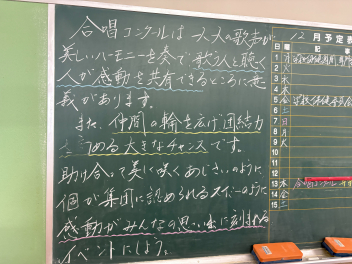 合唱コンクールは 一人一人の歌声が
美しいハーモニーを奏で 歌う人と聴く
人が感動を共有できるところに意
義があります。
また、仲間の輪を広げ団結力
を高める大きなチャンスです。
助け合って美しく咲くあじさいのように
個が集団に認められるスイミーのように
感動がみんなの思い出に刻まれる
イベントにしよう。
12月予定表
日 曜 記 事
1
2
3
4
5
6 土
7 日
8 月
9 火
10
11
12
13 木 合唱コンクール
14 金
15 土